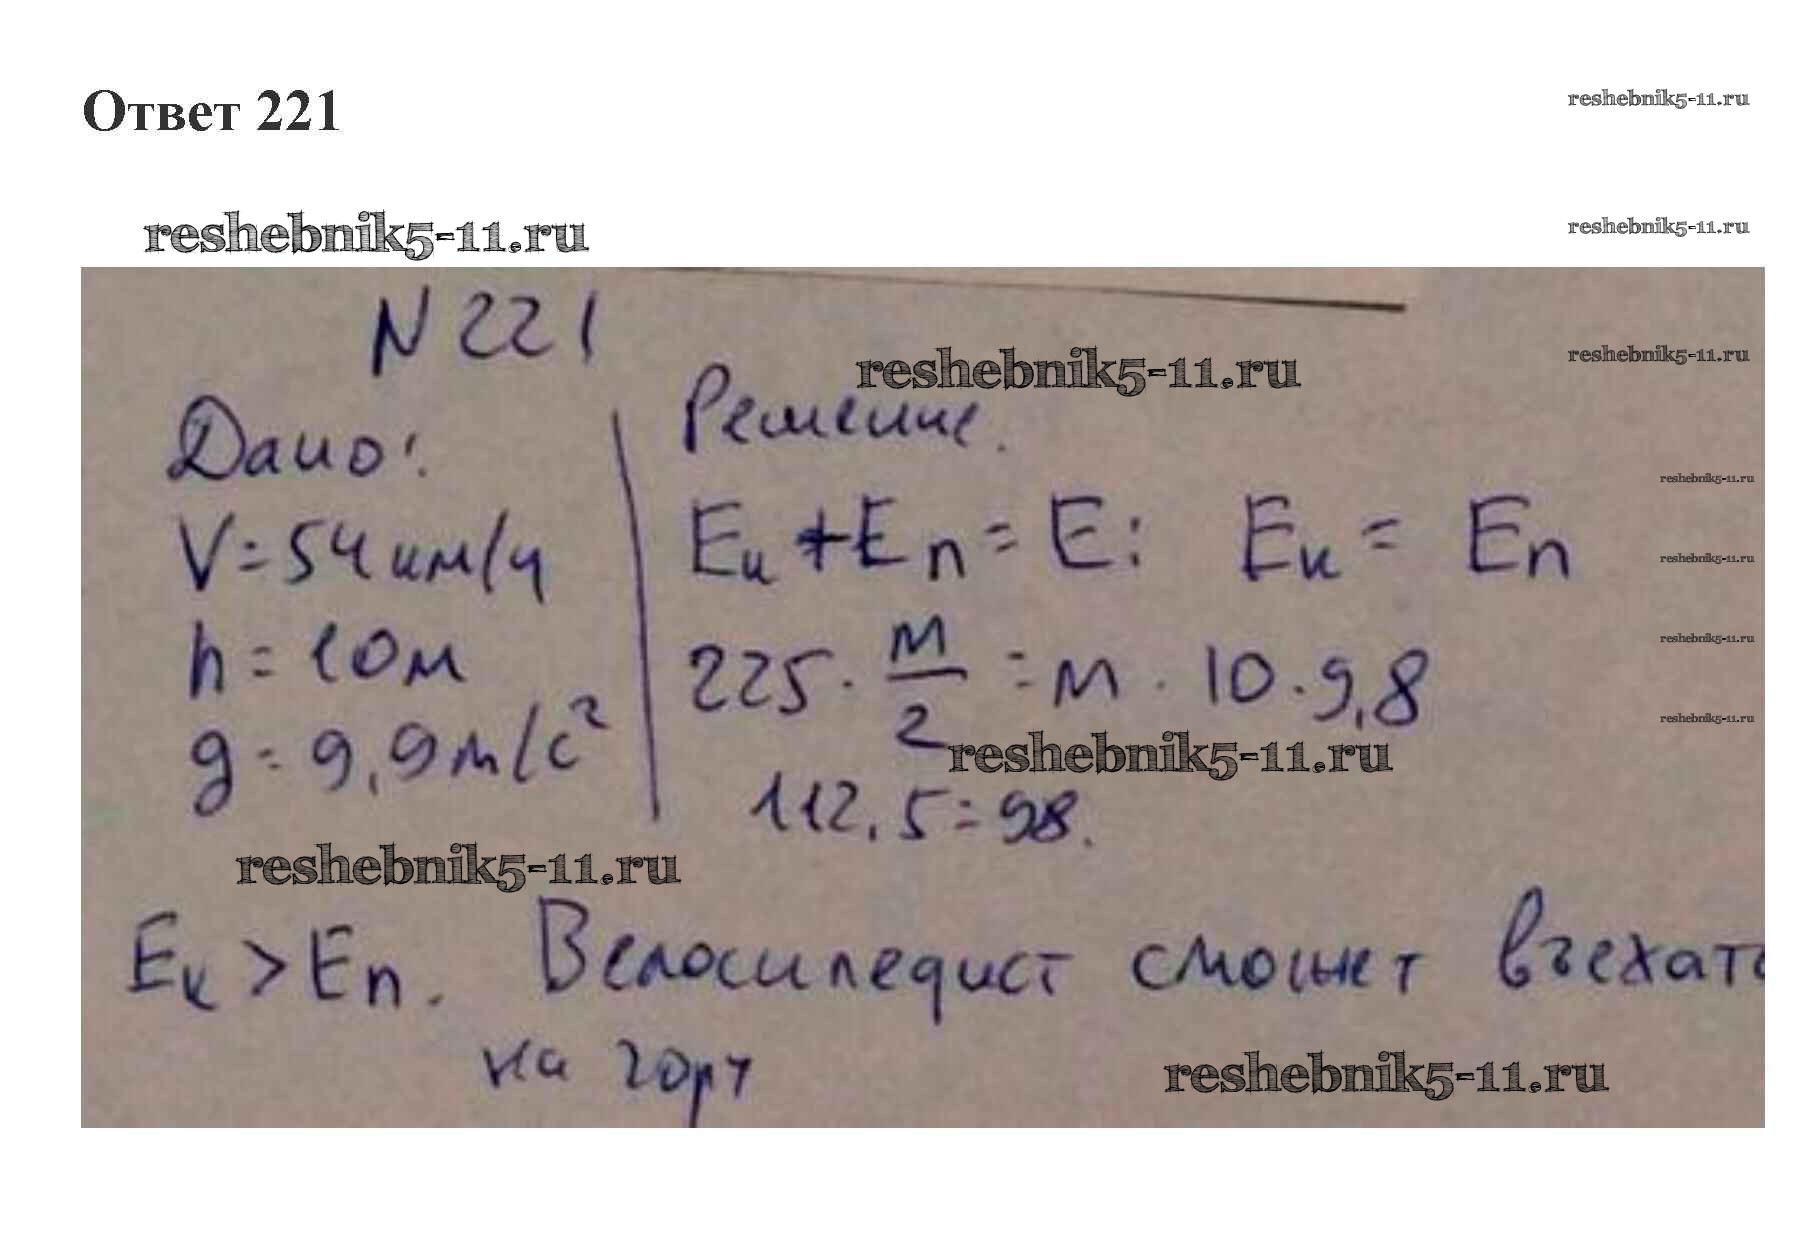 Ответ 221
reshebnik5-11.ru
reshebnik5-11.ru
reshebnik5-11.ru
N 221
reshebnik5-11.ru
reshebnik5-11.ru
Дано:
Решение.
reshebnik5-11.ru
V = 54 км/ч
Eк + Eп = E: Eк = Eп
reshebnik5-11.ru
h = 10м
225 · м/2 = м · 10 · 9,8
reshebnik5-11.ru
g = 9,9м/с²
reshebnik5-11.ru
reshebnik5-11.ru
112,5 = 98.
reshebnik5-11.ru
Eк > Eп. Велосипедист сможет въехать
на гору
reshebnik5-11.ru